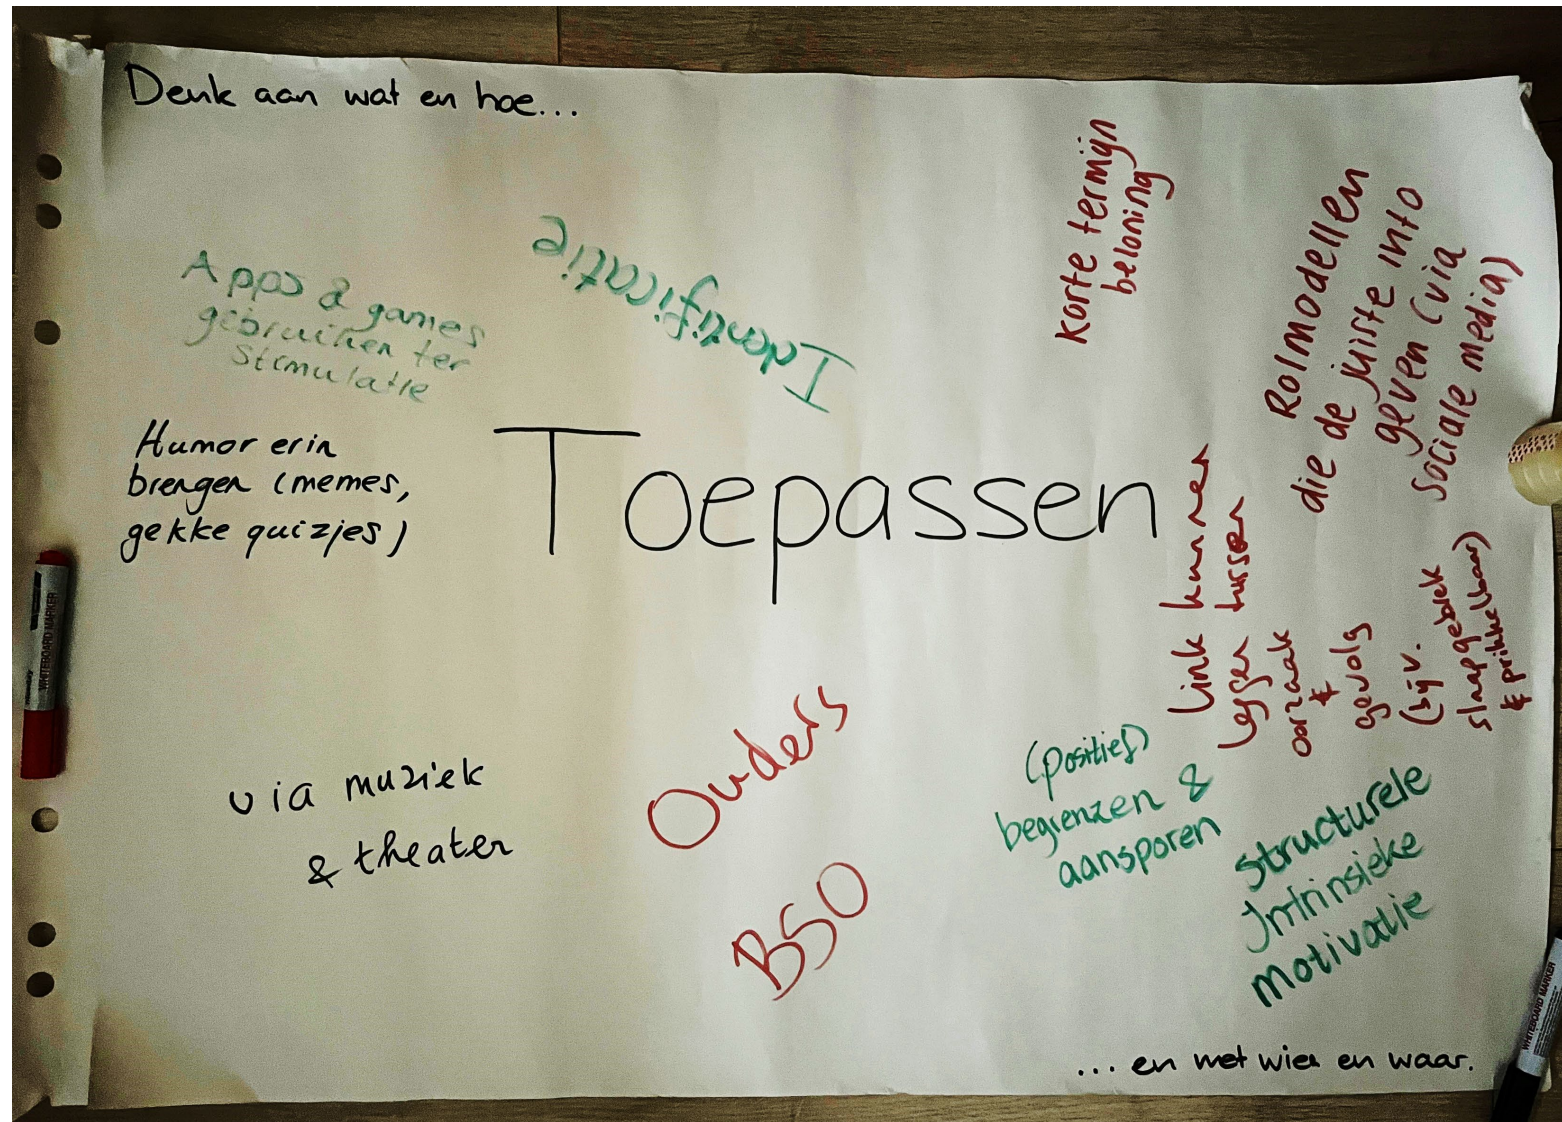 Denk aan wat en hoe...
Apps & games
gebruiken ter
stimulatie
Identificatie
Korte termijn
beloning
Rolmodellen
die de juiste info
geven (via
sociale media)
Humor erin
brengen (memes,
gekke quizjes)
Toepassen
Link kunnen
leggen tussen
oorzaak
&
gevolg
(bijv.
slaapgebrek
& prikkelbaar)
via muziek
& theater
Ouders
BSO
(positief)
begrenzen &
aansporen
structurele
Intrinsieke
motivatie
... en met wien en waar.
WHITEBOARD MARKER
WHITEBOARD MARKER